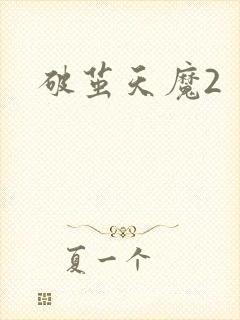 破茧天魔2
夏一个